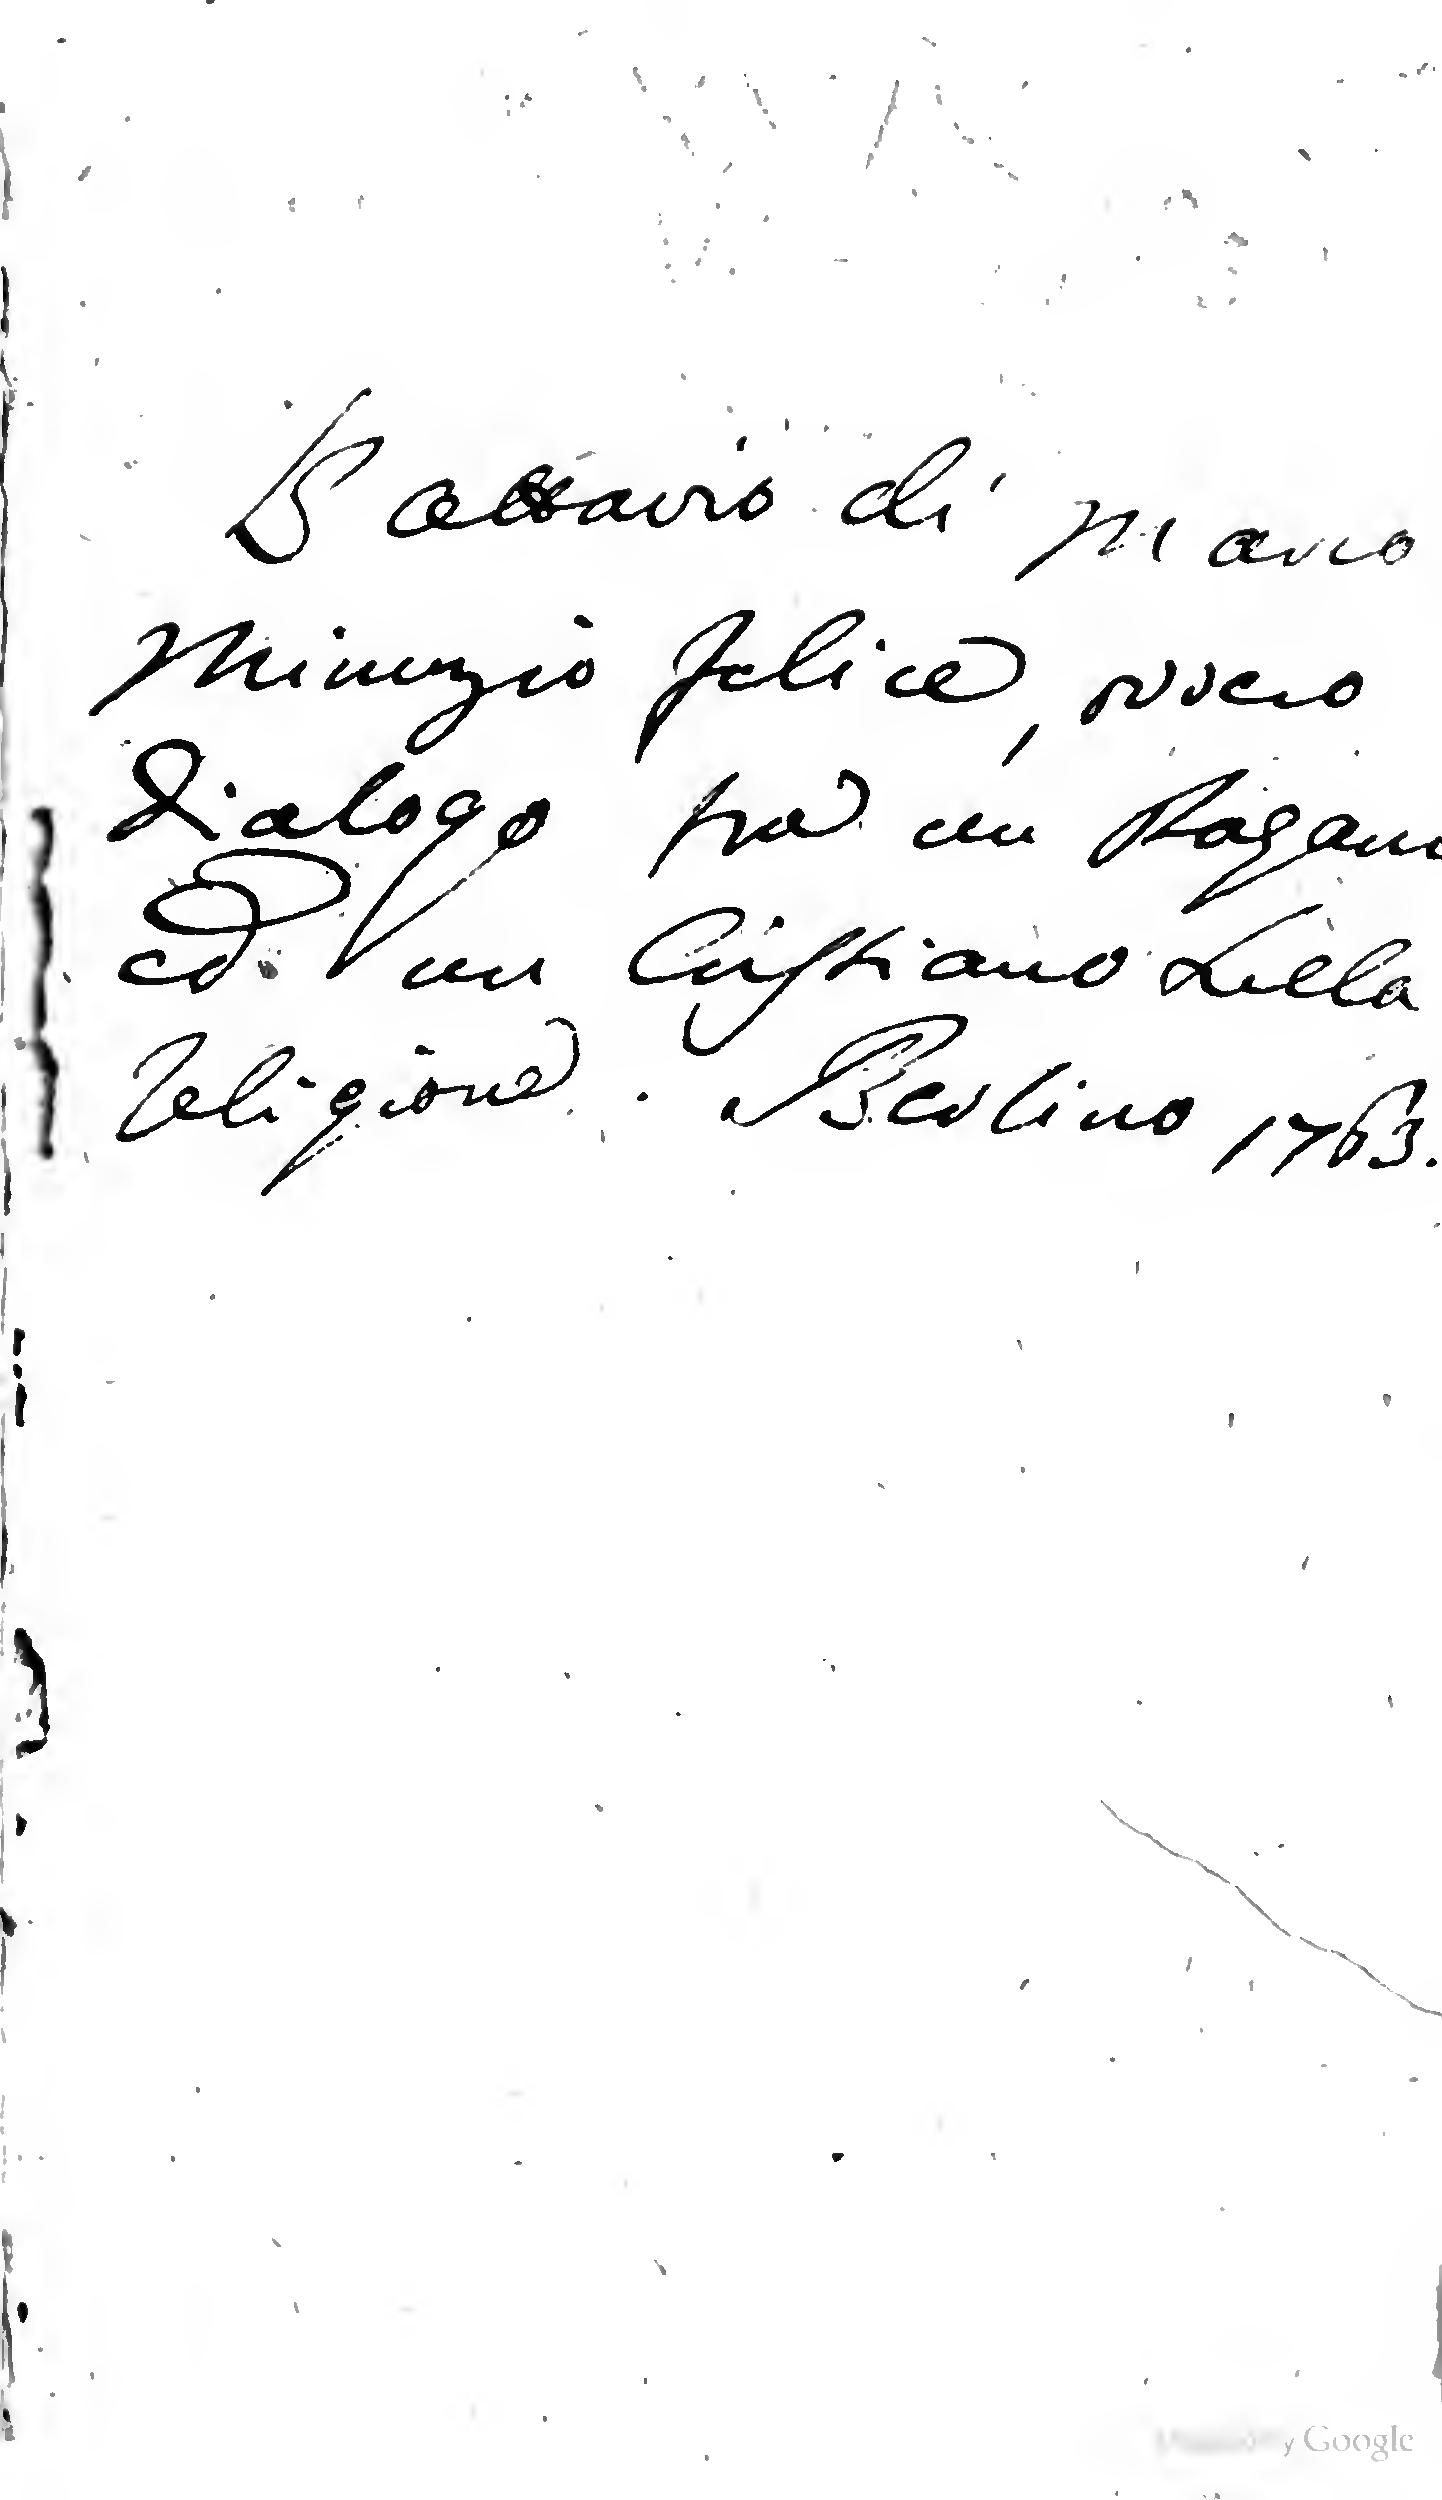 L'Ottavio di Marco
Minuzio Felice, ovvero
Dialogo fra un Pagano
ed un Cristiano della
religione. Berlino 1763.
Google